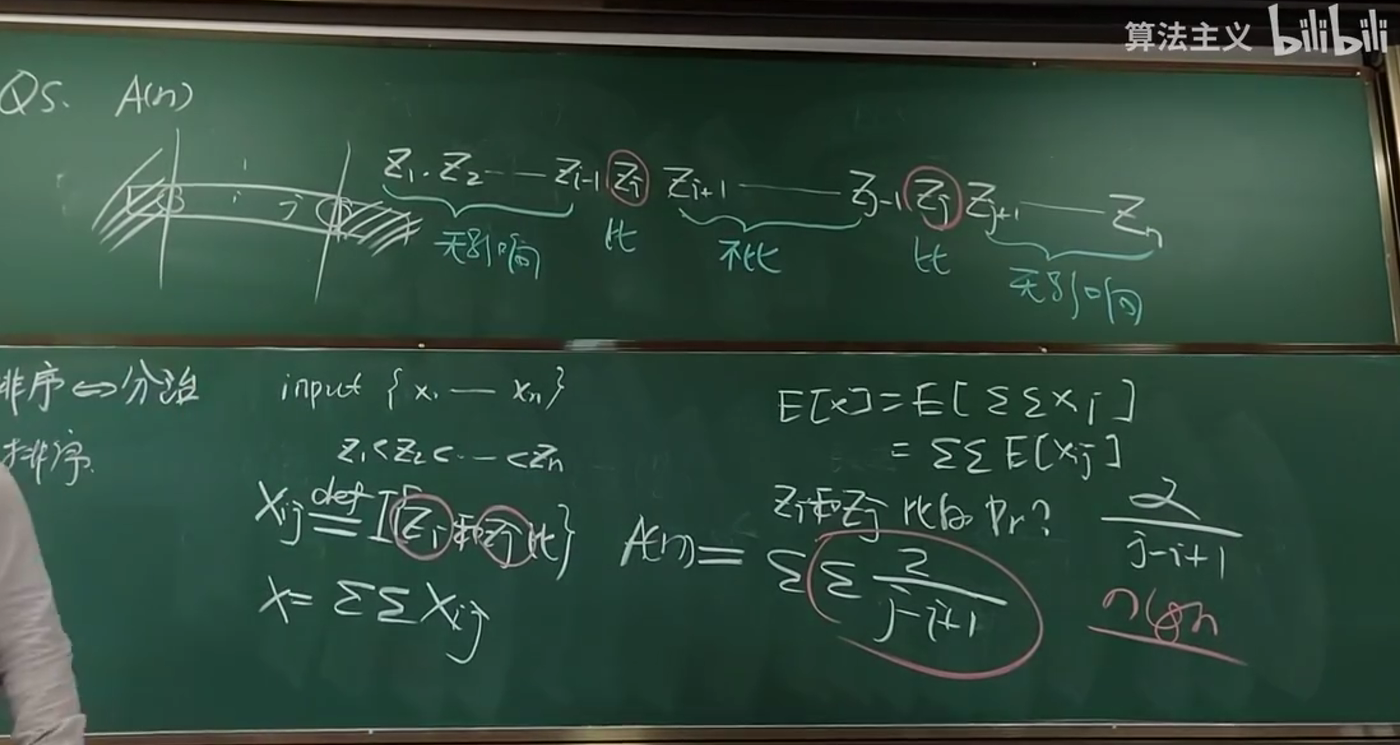 算法主义 bilibili
QS. A(n)
Z₁. Z₂ —— Zᵢ₋₁ Zᵢ Zᵢ₊₁ —— Zⱼ₋₁ Zⱼ Zⱼ₊₁ —— Zₙ
i j
无影响 比 不比 比 无影响
排序 ⇔ 分治
排序.
input { x₁ — xₙ }
z₁ < z₂ < ··· < zₙ
Xᵢⱼ def= I{Zᵢ 和 Zⱼ 比}
X = ΣΣ Xᵢⱼ
E[X] = E[ ΣΣ Xᵢⱼ ]
= ΣΣ E[Xᵢⱼ]
Zᵢ和Zⱼ 比的 Pr? 2/(j-i+1)
A(n) = ΣΣ 2/(j-i+1)